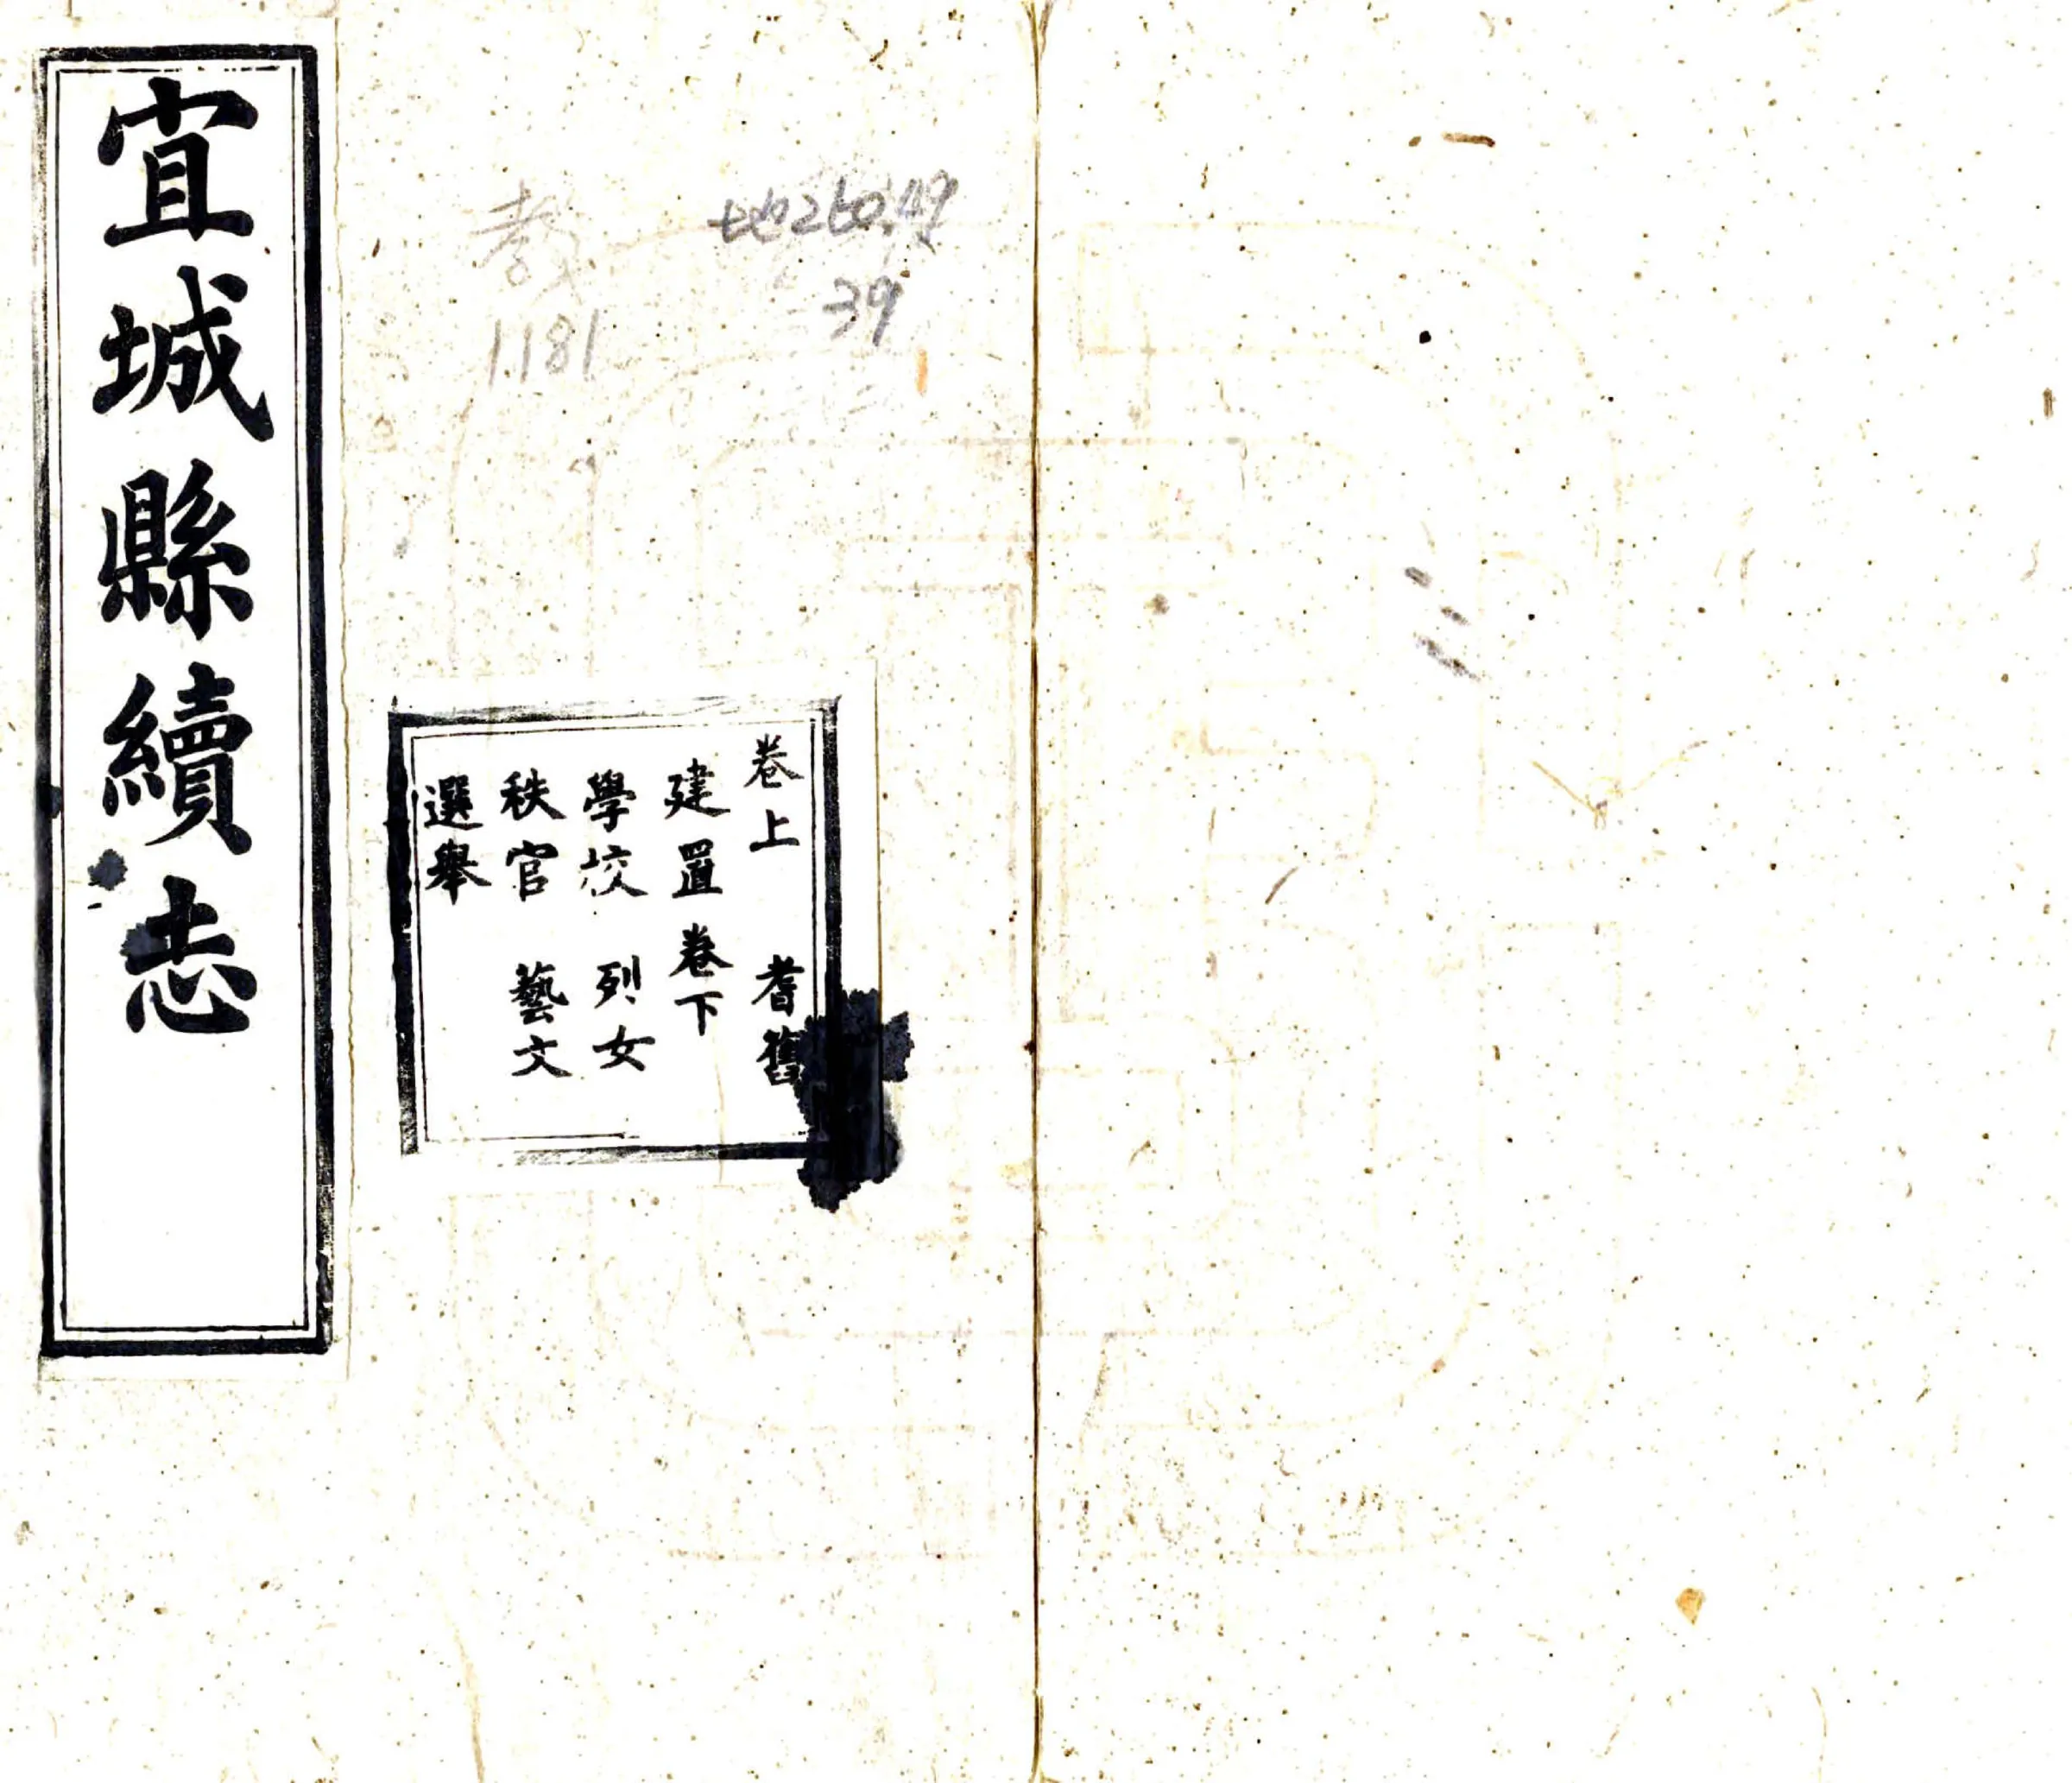 宜城縣續志
卷上 耆舊
建置 卷下
學校 列女
秩官 藝文
選舉
地260.49
39
教
1181